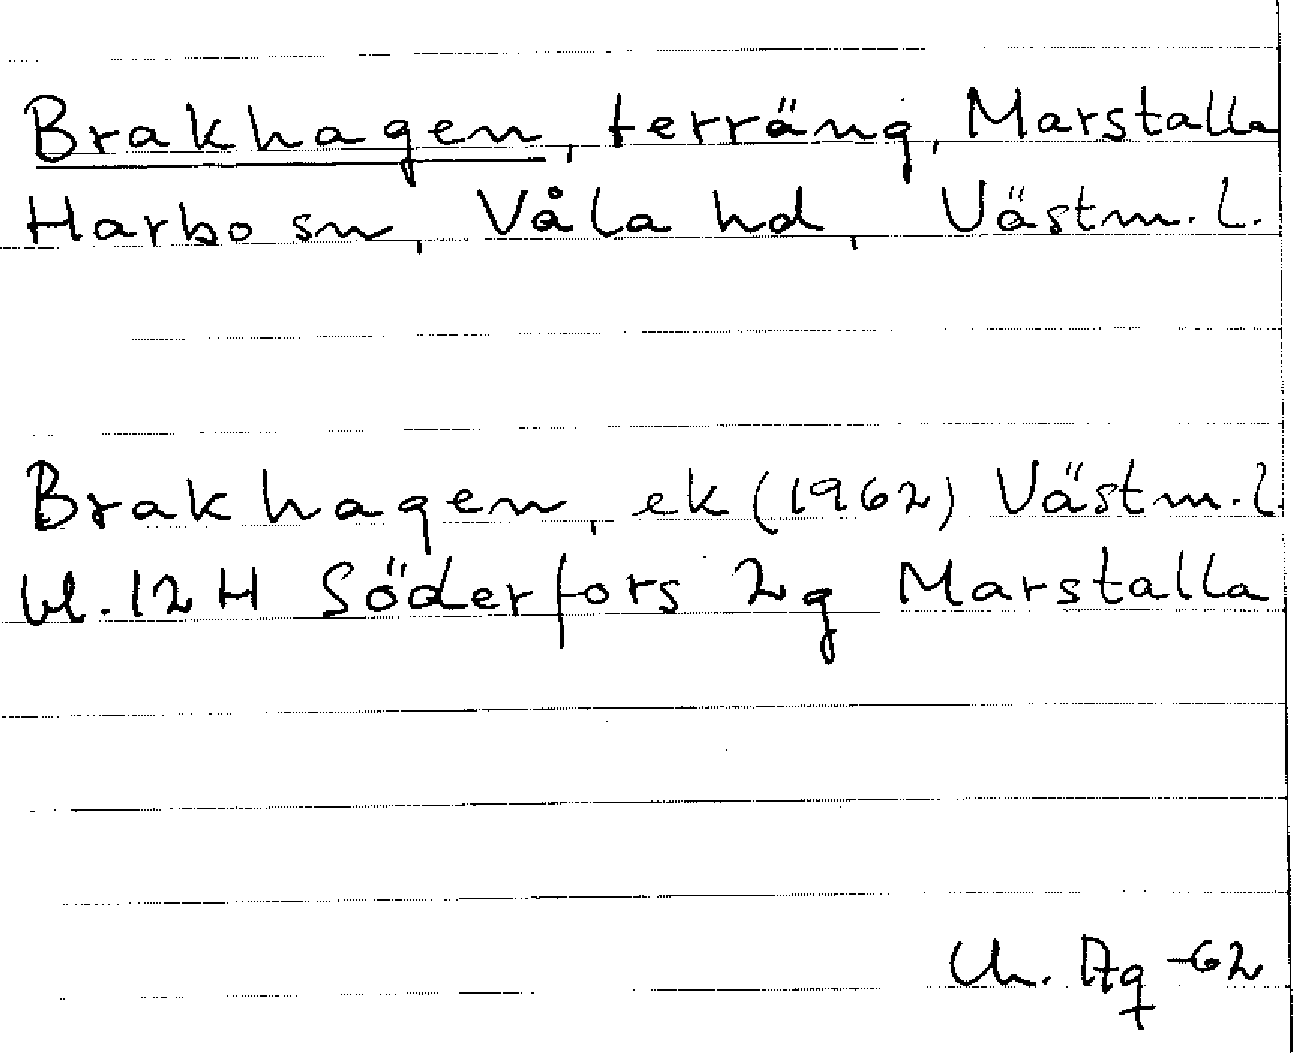 Brakhagen, terräng, Marstalla
Harbo sn, Våla hd, Västm. l.
Brakhagen, ek (1962) Västm. l
bl. 12 H Söderfors 2g Marstalla
Ch. Ag -62